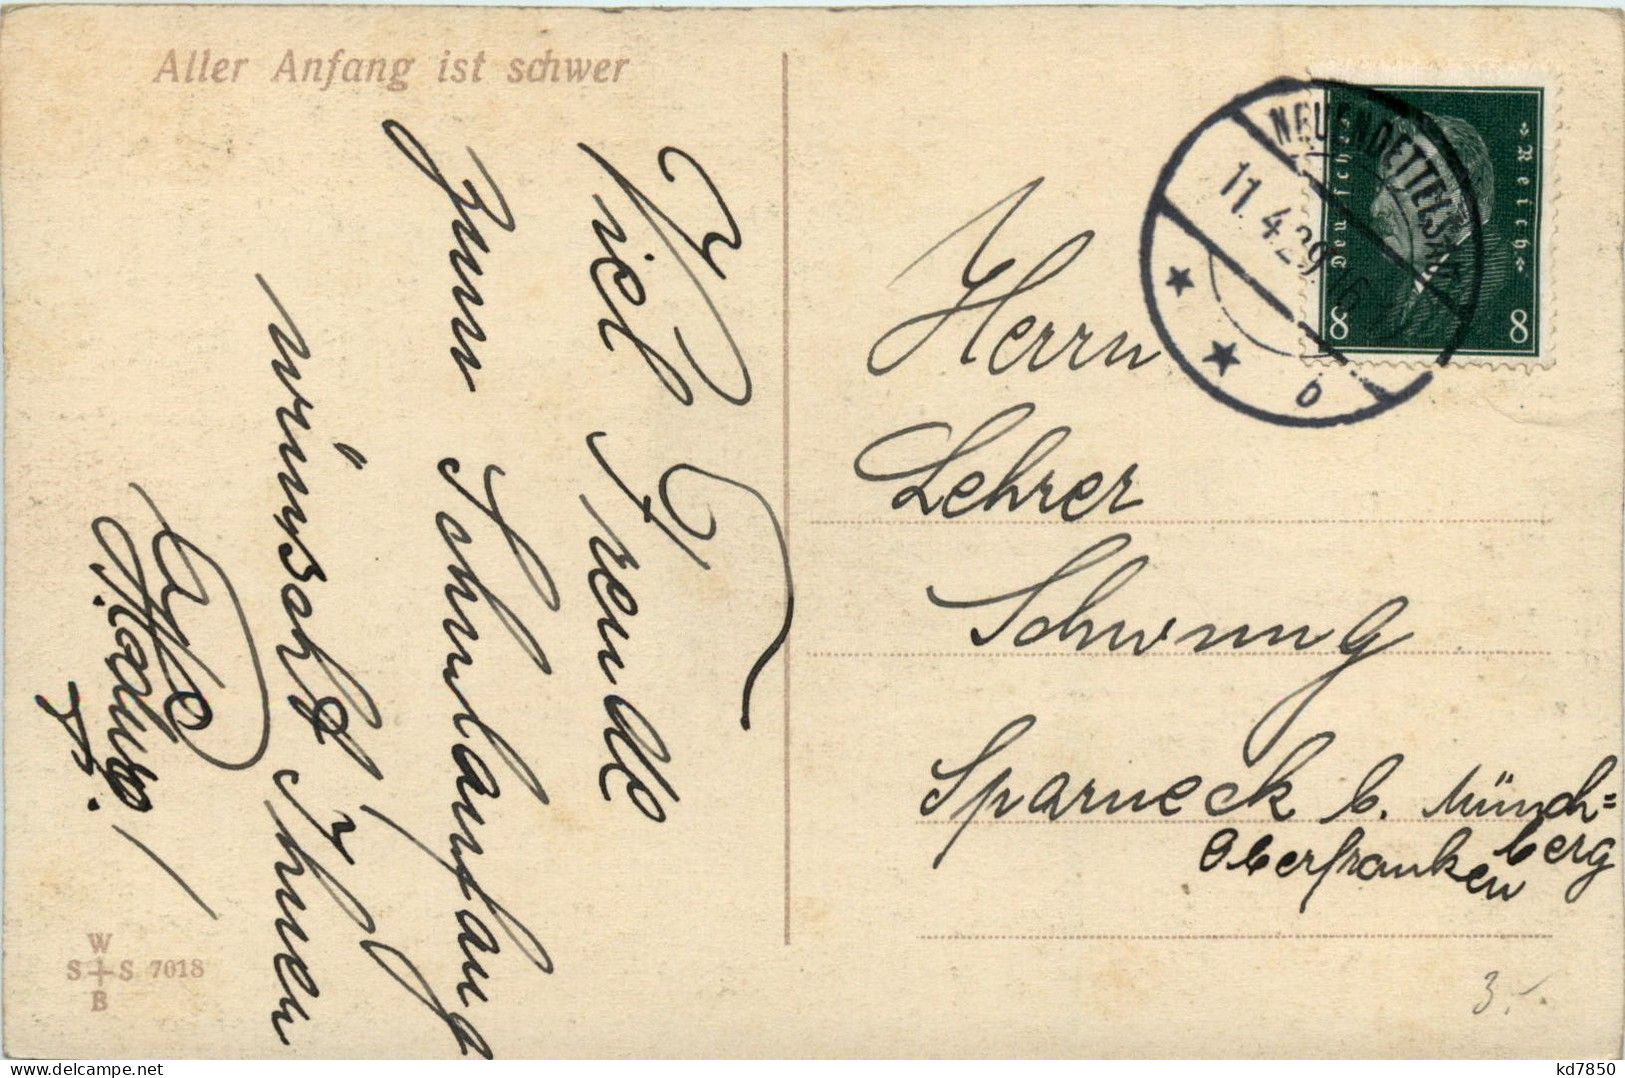 Aller Anfang ist schwer
Viel Freude
zum Schulanfang
wünscht Ihnen
W
S S 7018
B
NEUENDETTELSAU
11.4.29 16
b
Deutsches
«Reich»
8 8
Herrn
Lehrer
Schwung
Sparneck b. Münch=
berg
Oberfranken
3.-
kd7850